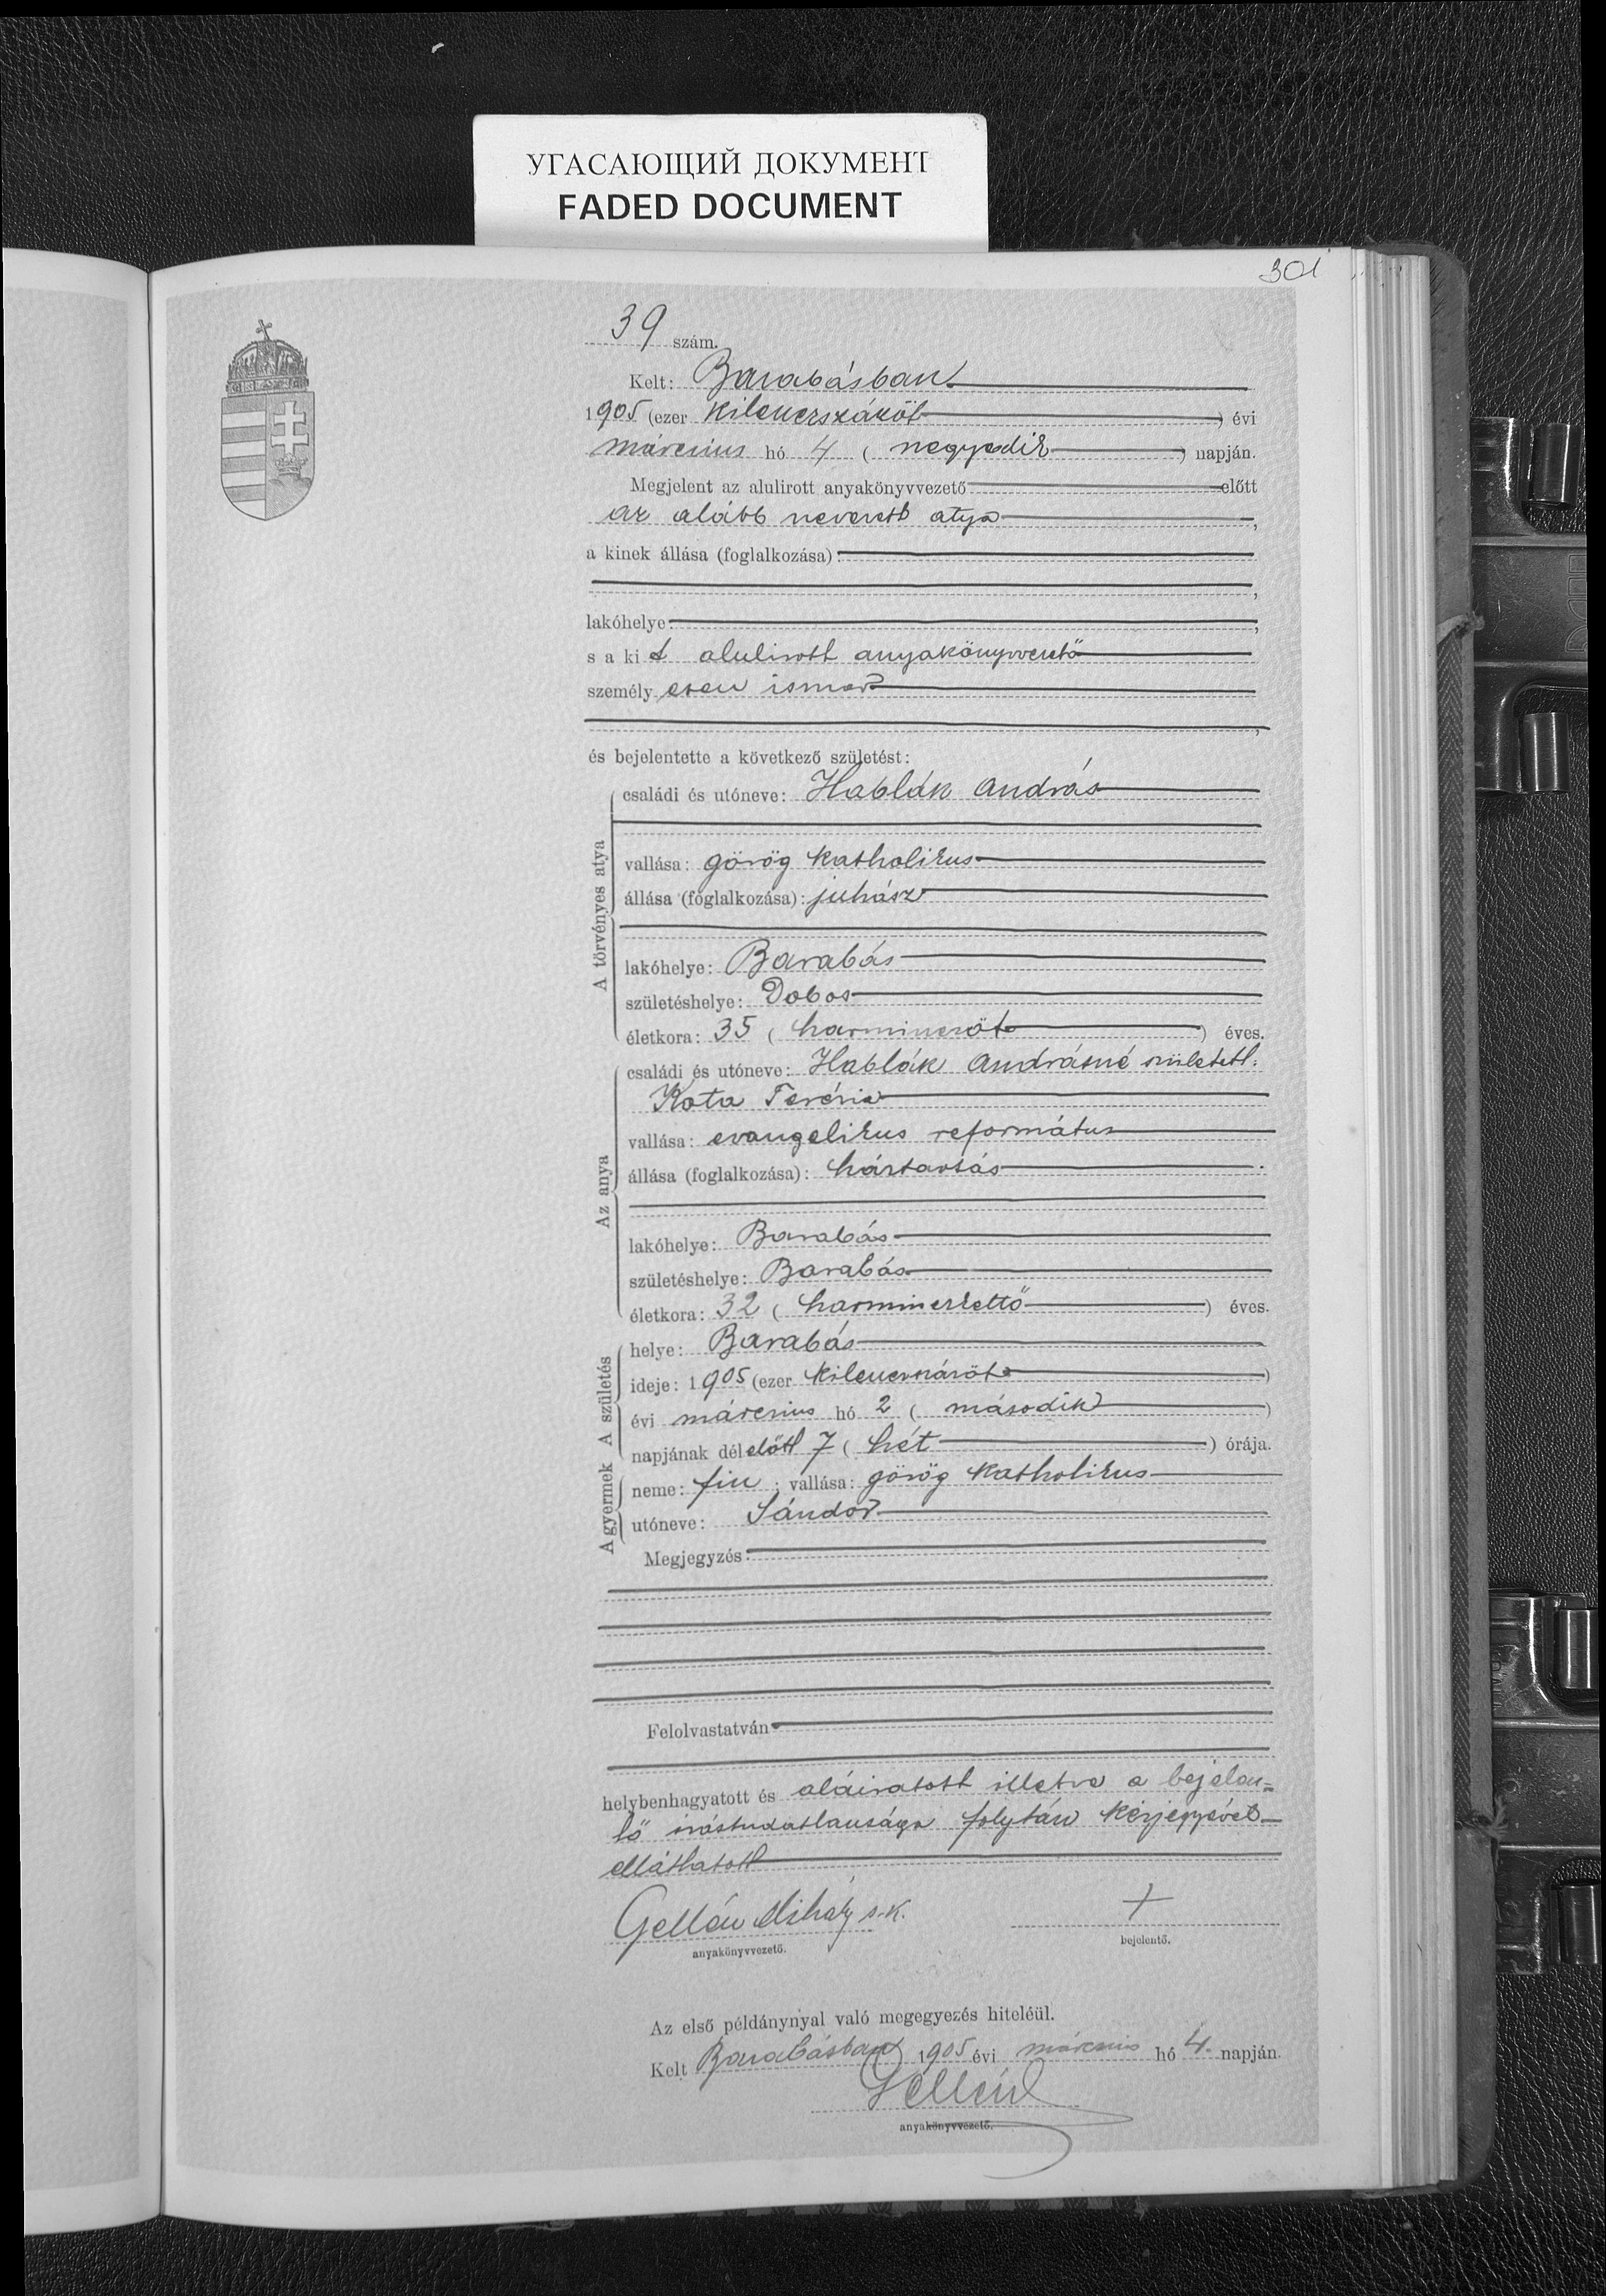 УГАСАЮЩИЙ ДОКУМЕНТ
FADED DOCUMENT
301
39 szám.
Kelt: Barabásban
1905 (ezer kilencszázöt ) évi
március hó 4 ( negyedik ) napján.
Megjelent az alulirott anyakönyvvezető előtt
az alább nevezett atya ,
a kinek állása (foglalkozása):
,
lakóhelye: ,
s a kit alulirott anyakönyvvezető
személyesen ismer
,
és bejelentette a következő születést:
A törvényes atya
családi és utóneve: Hablák András
vallása: görög katholikus
állása (foglalkozása): juhász
lakóhelye: Barabás
születéshelye: Dobos
életkora: 35 ( harmincöt ) éves.
Az anya
családi és utóneve: Hablák Andrásné született
Kota Terézia
vallása: evangelikus református
állása (foglalkozása): háztartás
lakóhelye: Barabás
születéshelye: Barabás
életkora: 32 ( harminckettő ) éves.
A születés
helye: Barabás
ideje: 1905 (ezer kilencszázöt )
évi március hó 2 ( második )
napjának délelőtt 7 ( hét ) órája.
A gyermek
neme: fiu ; vallása: görög katholikus
utóneve: Sándor
Megjegyzés:
Felolvastatván
helybenhagyatott és aláiratott illetve a bejelen=
tő irástudatlansága folytán kézjegyével
elláttatott
Gellén Mihály s.k. +
anyakönyvvezető. bejelentő.
Az első példánynyal való megegyezés hiteléül.
Kelt Barabásban 1905 évi március hó 4. napján.
Gellén
anyakönyvvezető.